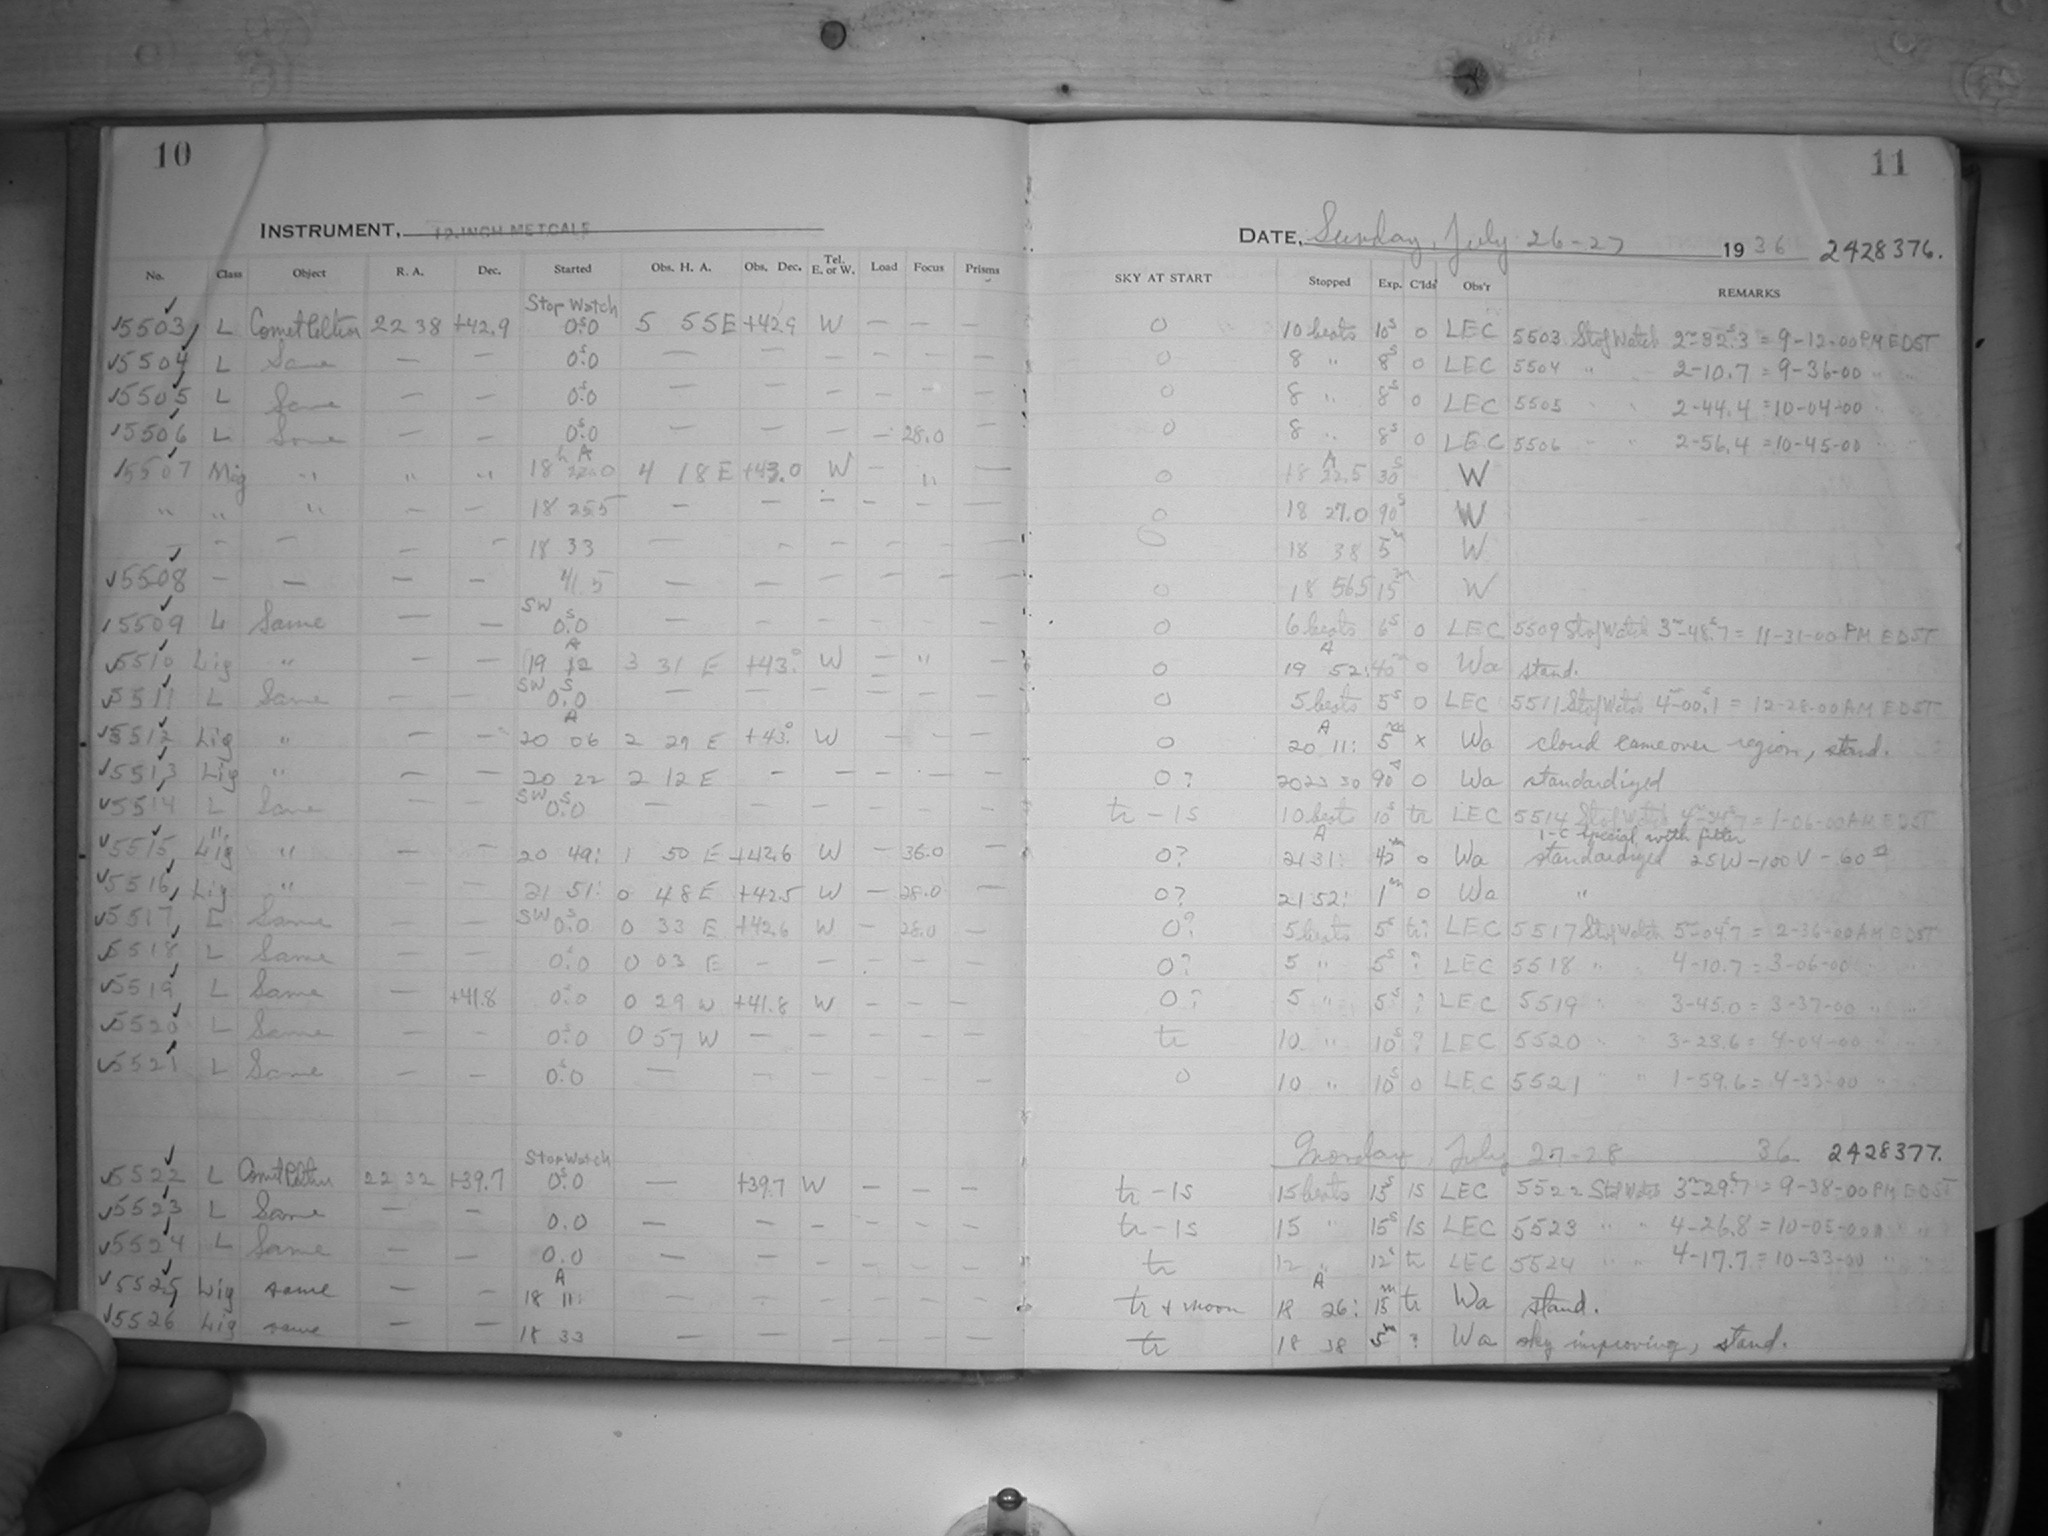 10
INSTRUMENT, 12-INCH METCALF
No. Class Object R. A. Dec. Started Obs. H. A. Obs. Dec. Tel. E. or W. Load Focus Prisms
Stop Watch
15503 L Comet Peltier 22 38 +42.9 0.0 5 55 E +42.9 W — — —
5504 L Same — — 0.0 — — — — — —
15505 L Same — — 0.0 — — — — — —
15506 L Same — — 0.0 — — — — 28.0 —
15507 Mig " " " 18 22.0 4 18 E +43.0 W — " —
" " " — — 18 25.5 — — — — — —
— — — — — 18 33 — — — — — —
5508 — — — — 41.5 — — — — — —
SW
15509 L Same — — 0.0 — — — — — —
A
5510 Lig " — — 19 12 3 31 E +43.0 W — " —
SW
5511 L Same — — 0.0 — — — — — —
A
5512 Lig " — — 20 06 2 29 E +43.0 W — — —
5513 Lig " — — 20 22 2 12 E — — — — —
SW
5514 L Same — — 0.0 — — — — — —
5515 Lig " — — 20 49: 1 50 E +42.6 W — 36.0 —
5516 Lig " — — 21 51: 0 48 E +42.5 W — 28.0 —
5517 L Same — — SW 0.0 0 33 E +42.6 W — 28.0 —
5518 L Same — — 0.0 0 03 E — — — — —
5519 L Same — +41.8 0.0 0 29 W +41.8 W — — —
5520 L Same — — 0.0 0 57 W — — — — —
5521 L Same — — 0.0 — — — — — —
Stop Watch
5522 L Comet Peltier 22 32 +39.7 0.0 — +39.7 W — — —
5523 L Same — — 0.0 — — — — — —
5524 L Same — — 0.0 — — — — — —
A
5525 Lig same — — 18 11: — — — — — —
5526 Lig same — — 18 33 — — — — — —
11
DATE, Sunday, July 26-27 1936 2428376.
SKY AT START Stopped Exp. C'lds Obs'r REMARKS
0 10 beats 10s 0 LEC 5503 Stop Watch 2m-32s.3 = 9-12-00 PM EDST
0 8 " 8s 0 LEC 5504 " " 2-10.7 = 9-36-00 " "
0 8 " 8s 0 LEC 5505 " " 2-44.4 = 10-04-00 " "
0 8 " 8s 0 LEC 5506 " " 2-56.4 = 10-45-00 " "
A
0 18 22.5 30s W
0 18 27.0 90s W
0 18 38 5m W
0 18 56.5 15m W
0 6 beats 6s 0 LEC 5509 Stop Watch 3m-48s.7 = 11-31-00 PM EDST
A
0 19 52: 40m 0 Wa stand.
0 5 beats 5s 0 LEC 5511 Stop Watch 4m-00s.1 = 12-28-00 AM EDST
A
0 20 11: 5m x Wa cloud came over region, stand.
0? 20 23 30 90s 0 Wa standardized
tr - 1s 10 beats 10s tr LEC 5514 Stop Watch 4m-24s.7 = 1-06-00 AM EDST
A 1-C Special with filter
0? 21 31: 42m 0 Wa standardized 25W-100V-60s
0? 21 52: 1m 0 Wa "
0? 5 beats 5s tr? LEC 5517 Stop Watch 5m-04s.7 = 2-36-00 AM EDST
0? 5 " 5s ? LEC 5518 " " 4-10.7 = 3-06-00 " "
0? 5 " 5s ? LEC 5519 " " 3-45.0 = 3-37-00 " "
tr 10 " 10s ? LEC 5520 " " 3-23.6 = 4-04-00 " "
0 10 " 10s 0 LEC 5521 " " 1-59.6 = 4-33-00 " "
Monday, July 27-28 36 2428377.
tr - 1s 15 beats 15s 1s LEC 5522 Stop Watch 3m-29s.7 = 9-38-00 PM EDST
tr - 1s 15 " 15s 1s LEC 5523 " " 4-26.8 = 10-05-00 " "
tr 12 " 12s tr LEC 5524 " " 4-17.7 = 10-33-00 " "
A
tr + moon 18 26: 15m tr Wa stand.
tr 18 38 5m ? Wa sky improving, stand.